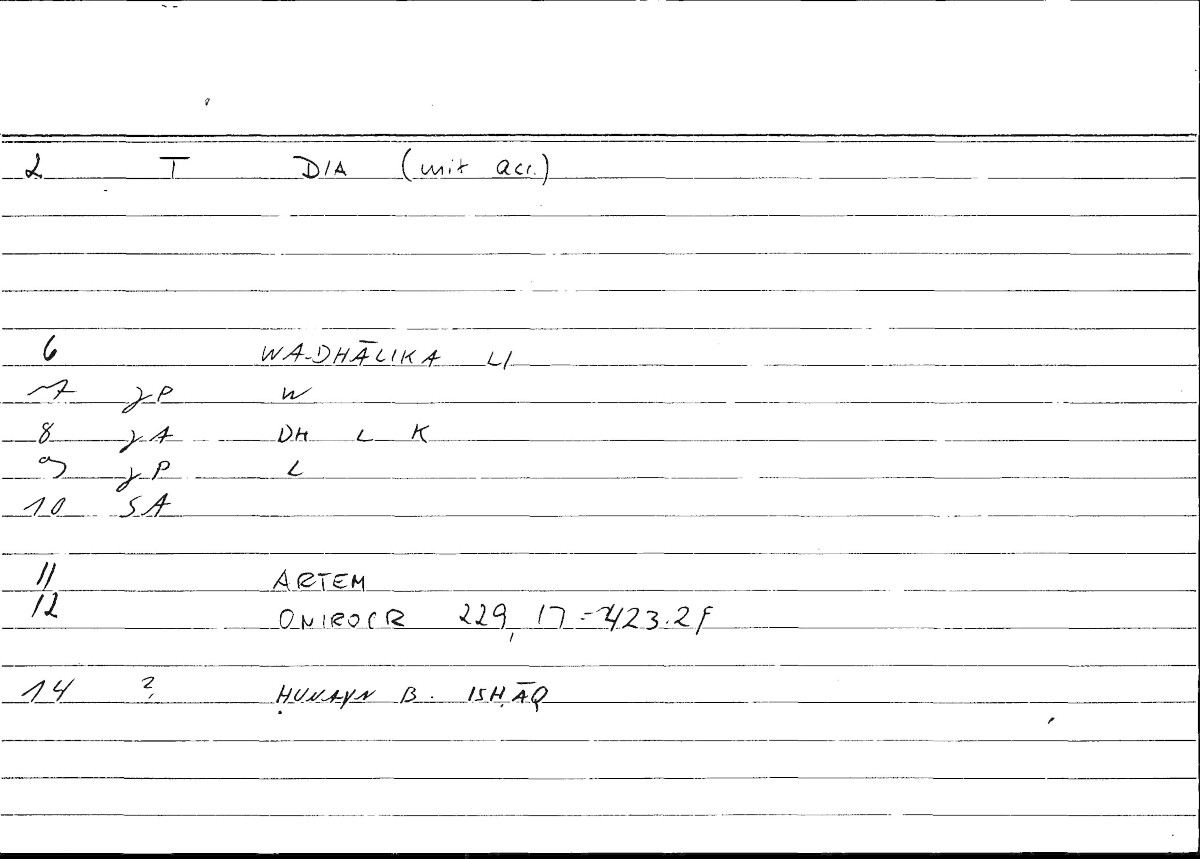 2 T DIA (mit acc.)
6 WA-DHĀLIKA LI
7 γP W
8 γA DH L K
9 γP L
10 SA
11 ARTEM
12 ONIROCR 229, 17 = 423.2f
14 ? ḤUNAYN B. ISḤĀQ